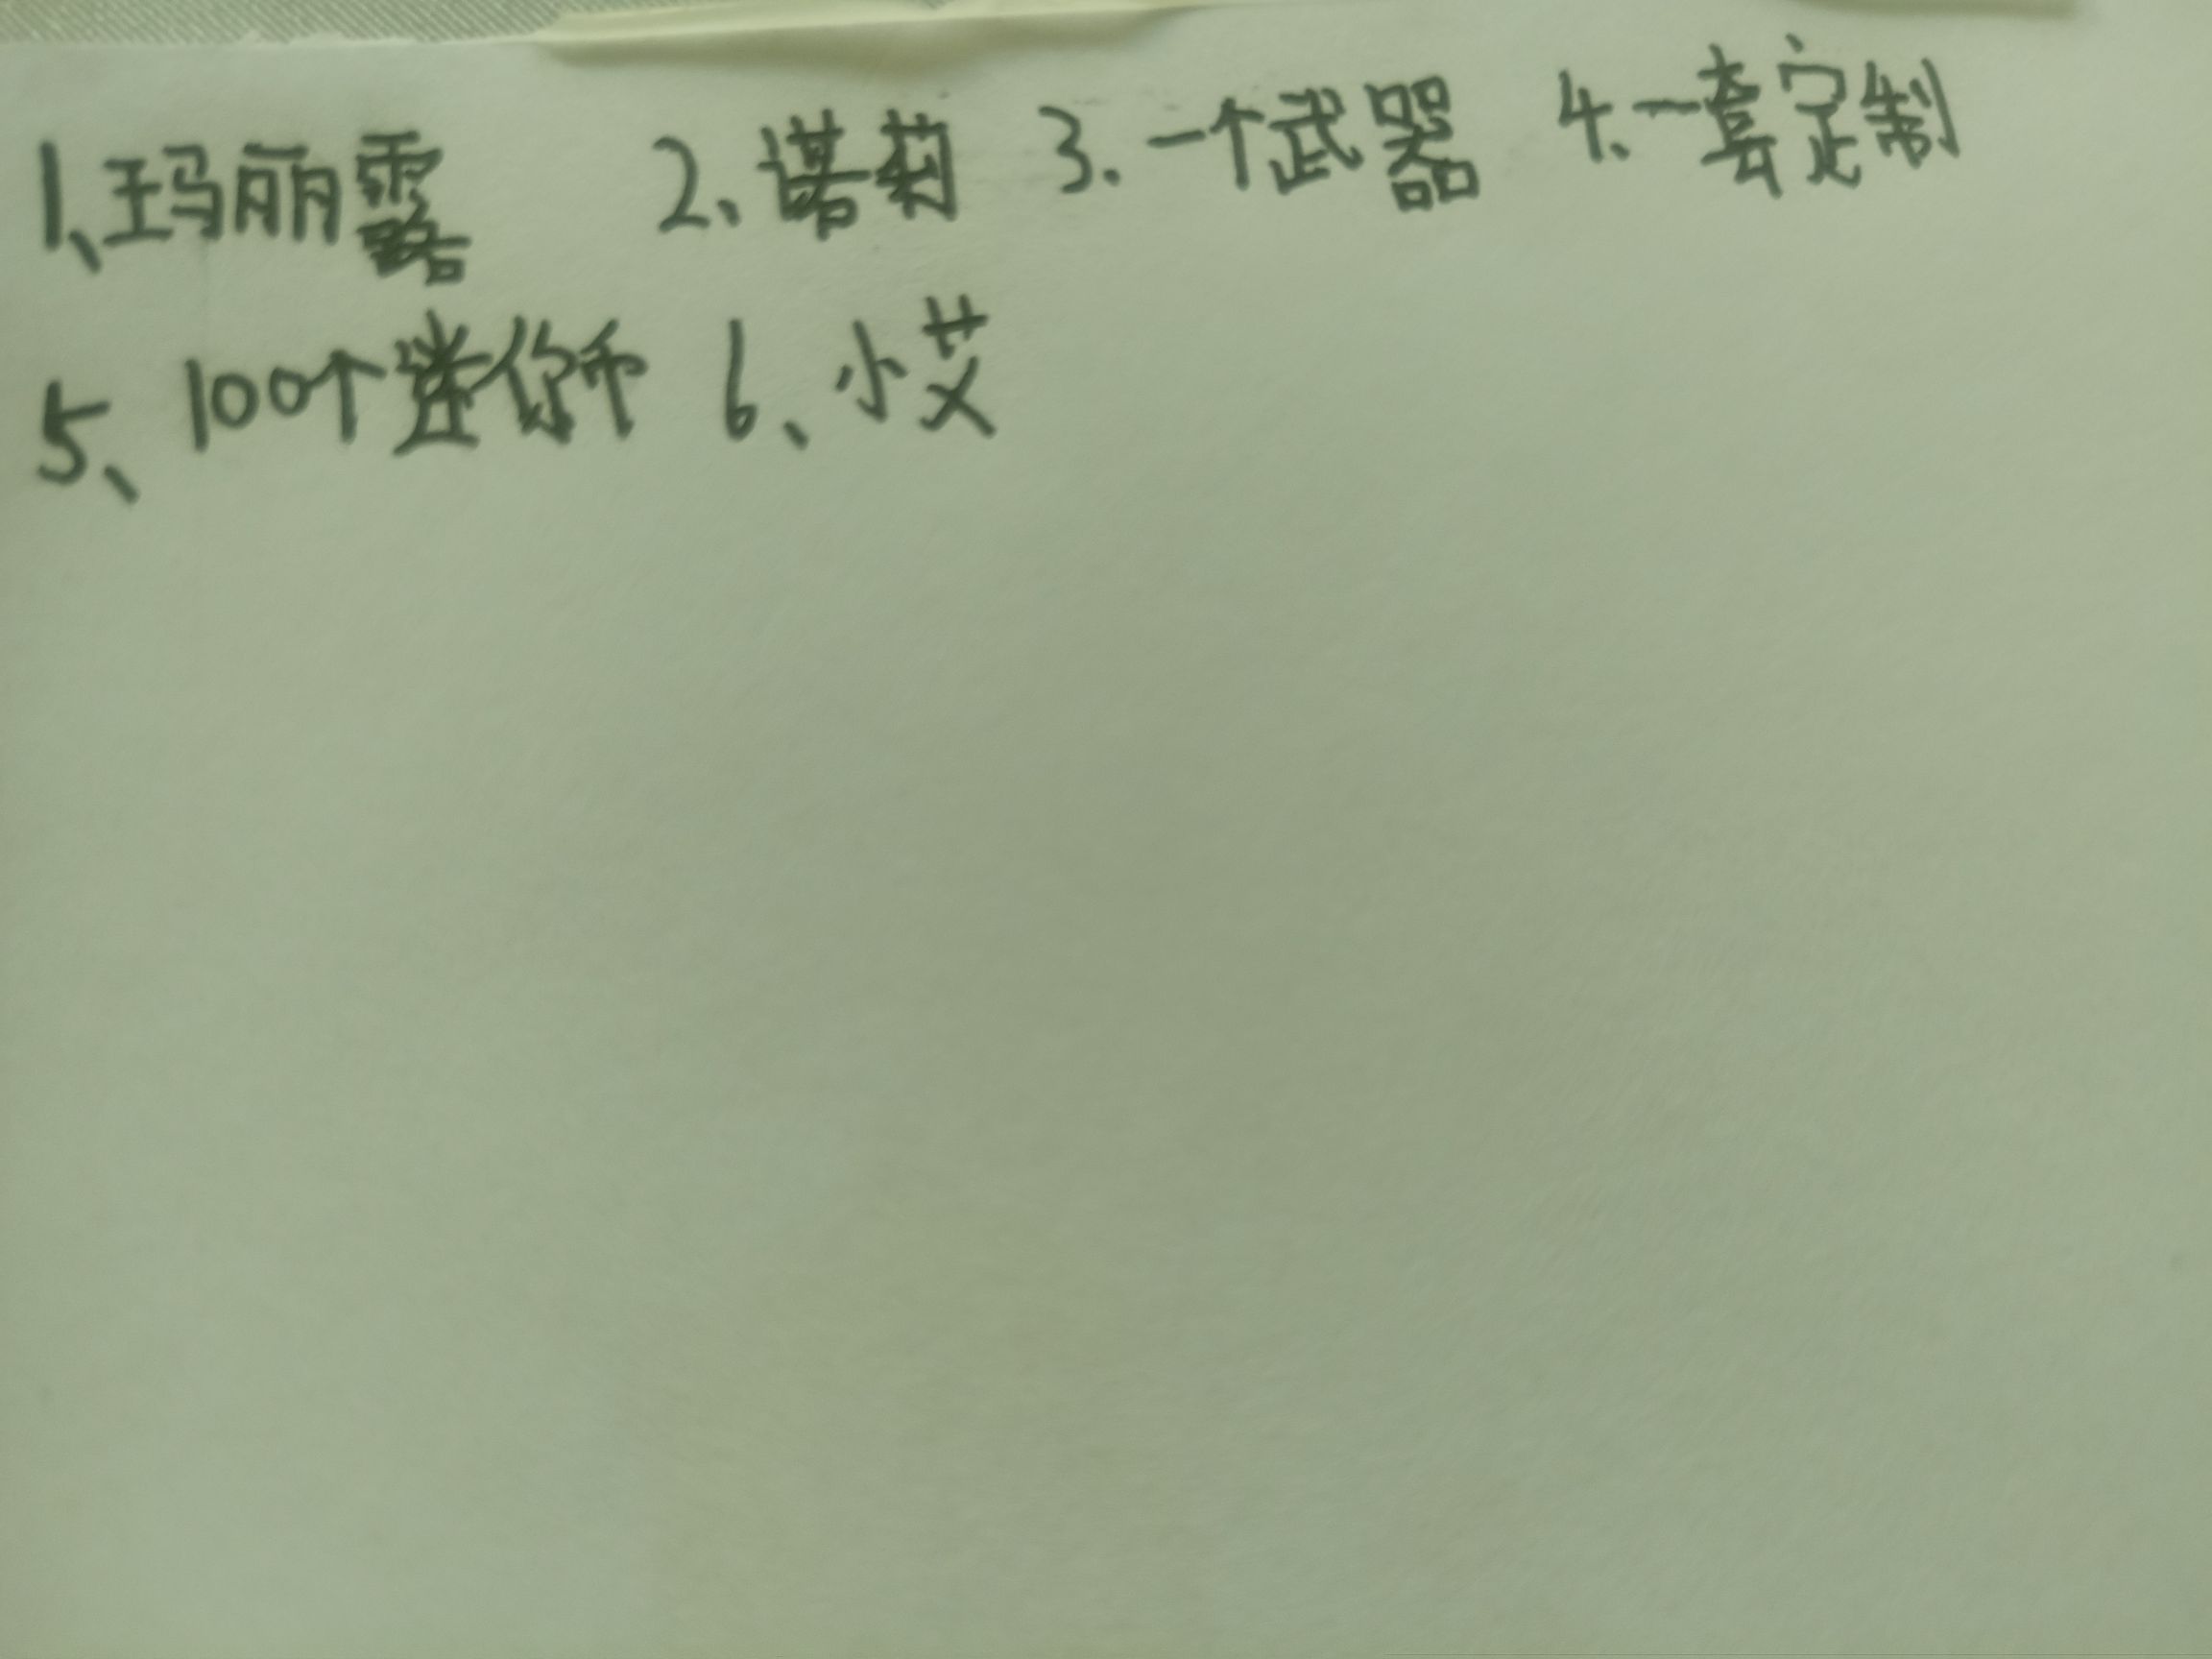 1、玛丽露 2、诺菊 3.一个武器 4、一套定制
5、100个迷你币 6、小艾